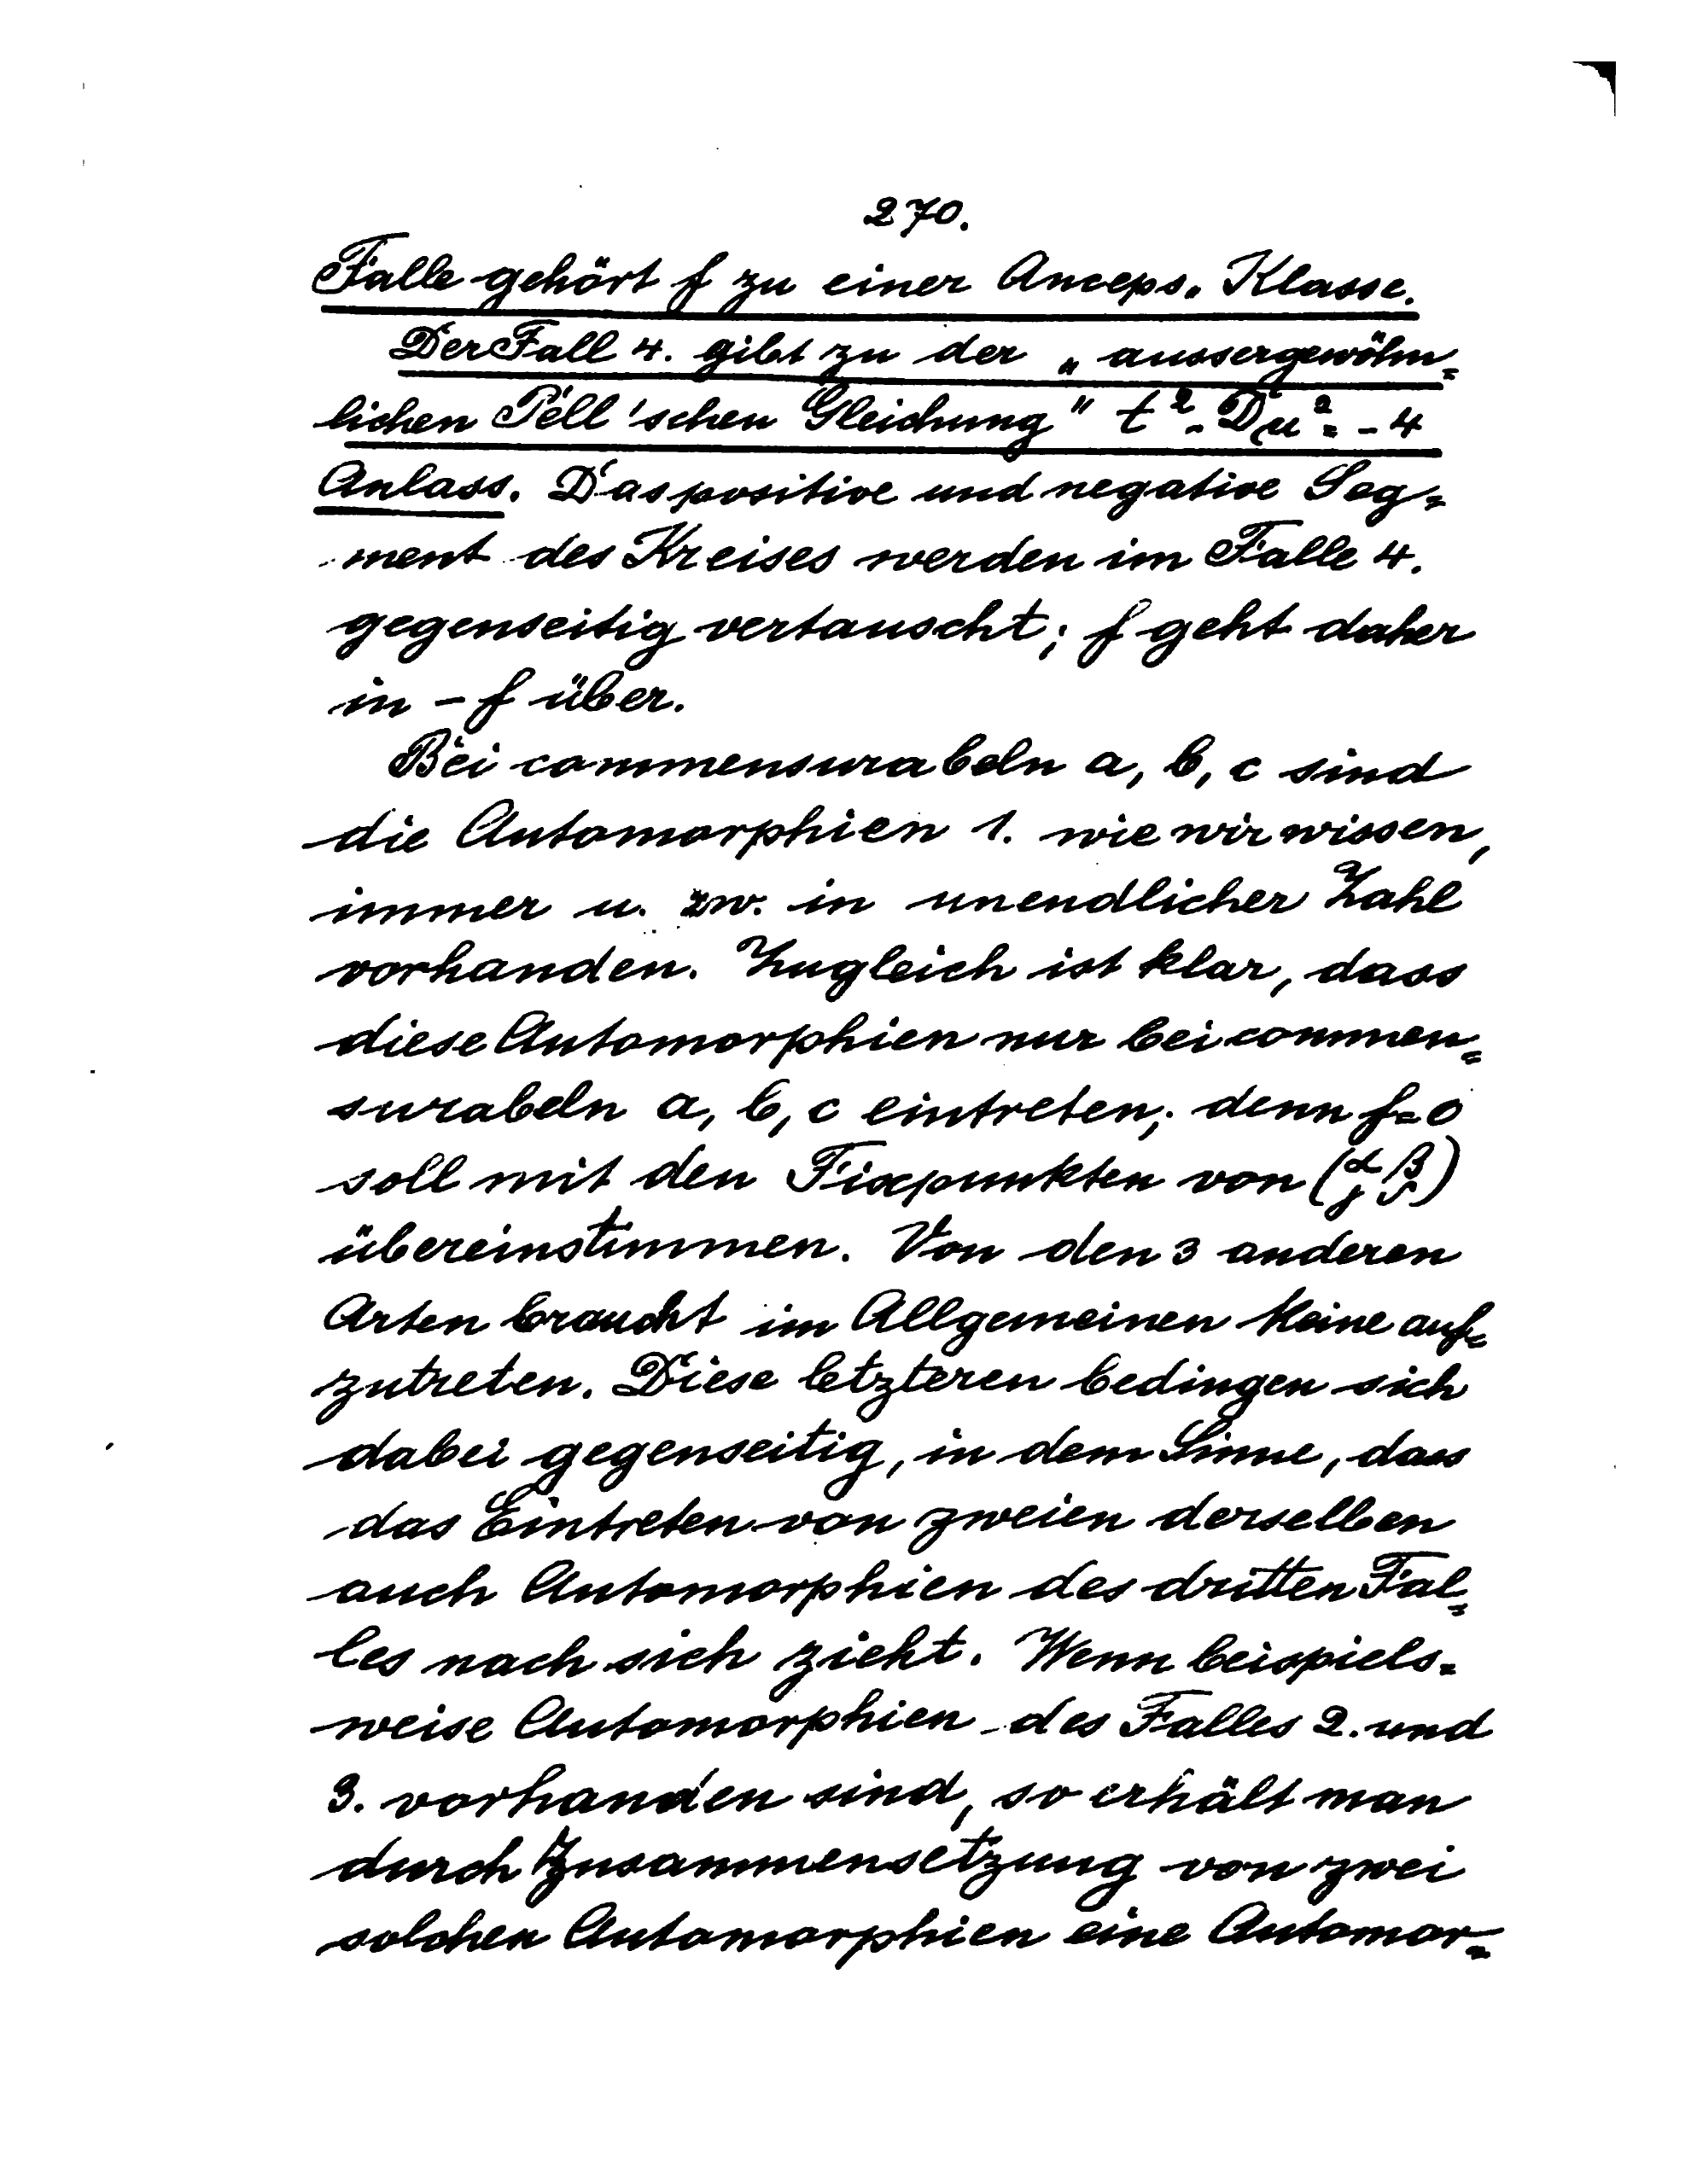 270.
Falle gehört f zu einer Anceps-Klasse.
Der Fall 4. gibt zu der „aussergewöhn=
lichen Pell'schen Gleichung" t² - Du² = - 4
Anlass. Das positive und negative Seg=
ment des Kreises werden im Falle 4.
gegenseitig vertauscht; f geht daher
in - f über.
Bei commensurabeln a, b, c sind
die Automorphien 1. wie wir wissen,
immer u. zw. in unendlicher Zahl
vorhanden. Zugleich ist klar, dass
diese Automorphien nur bei commen=
surabeln a, b, c eintreten; denn f=0
soll mit den Fixpunkten von (α β γ δ)
übereinstimmen. Von den 3 anderen
Arten braucht im Allgemeinen keine auf=
zutreten. Diese letzteren bedingen sich
dabei gegenseitig, in dem Sinne, dass
das Eintreten von zweien derselben
auch Automorphien des dritten Fal=
les nach sich zieht. Wenn beispiels=
weise Automorphien des Falles 2. und
3. vorhanden sind, so erhält man
durch Zusammensetzung von zwei
solchen Automorphien eine Automor=